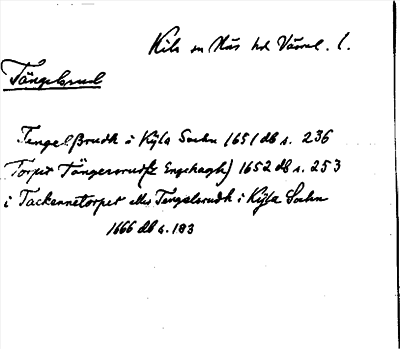 Kils sn Näs hd Värml. l.
Tängelsrud
Tengelßrudh i Kÿla Sochn 1651 db s. 236
Torpet Tängersrud (k Engehagh) 1652 db s. 253
i Tackennetorpet eller Tengelsrudh i Kÿla Sochn
1666 db s. 193